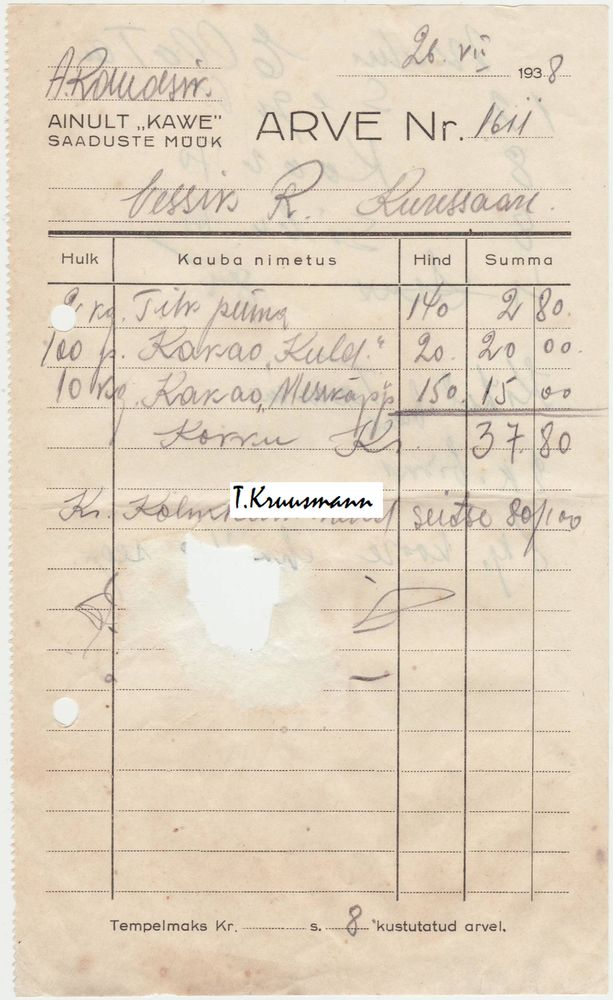 26. VII 1938
A. Raudsik
AINULT „KAWE"
SAADUSTE MÜÜK
ARVE Nr. 1611
Vessik R. Kuressaare.
Hulk Kauba nimetus Hind Summa
2 kg. piima 140 2 80.
100 p. Kakao „Kuld" 20. 20 00.
10 kg. Kakao „ 150. 15 00
Kokku Kr. 37.80
T.Kruusmann
Kr. seitse 80/100
Tempelmaks Kr. s. 8 kustutatud arvel.